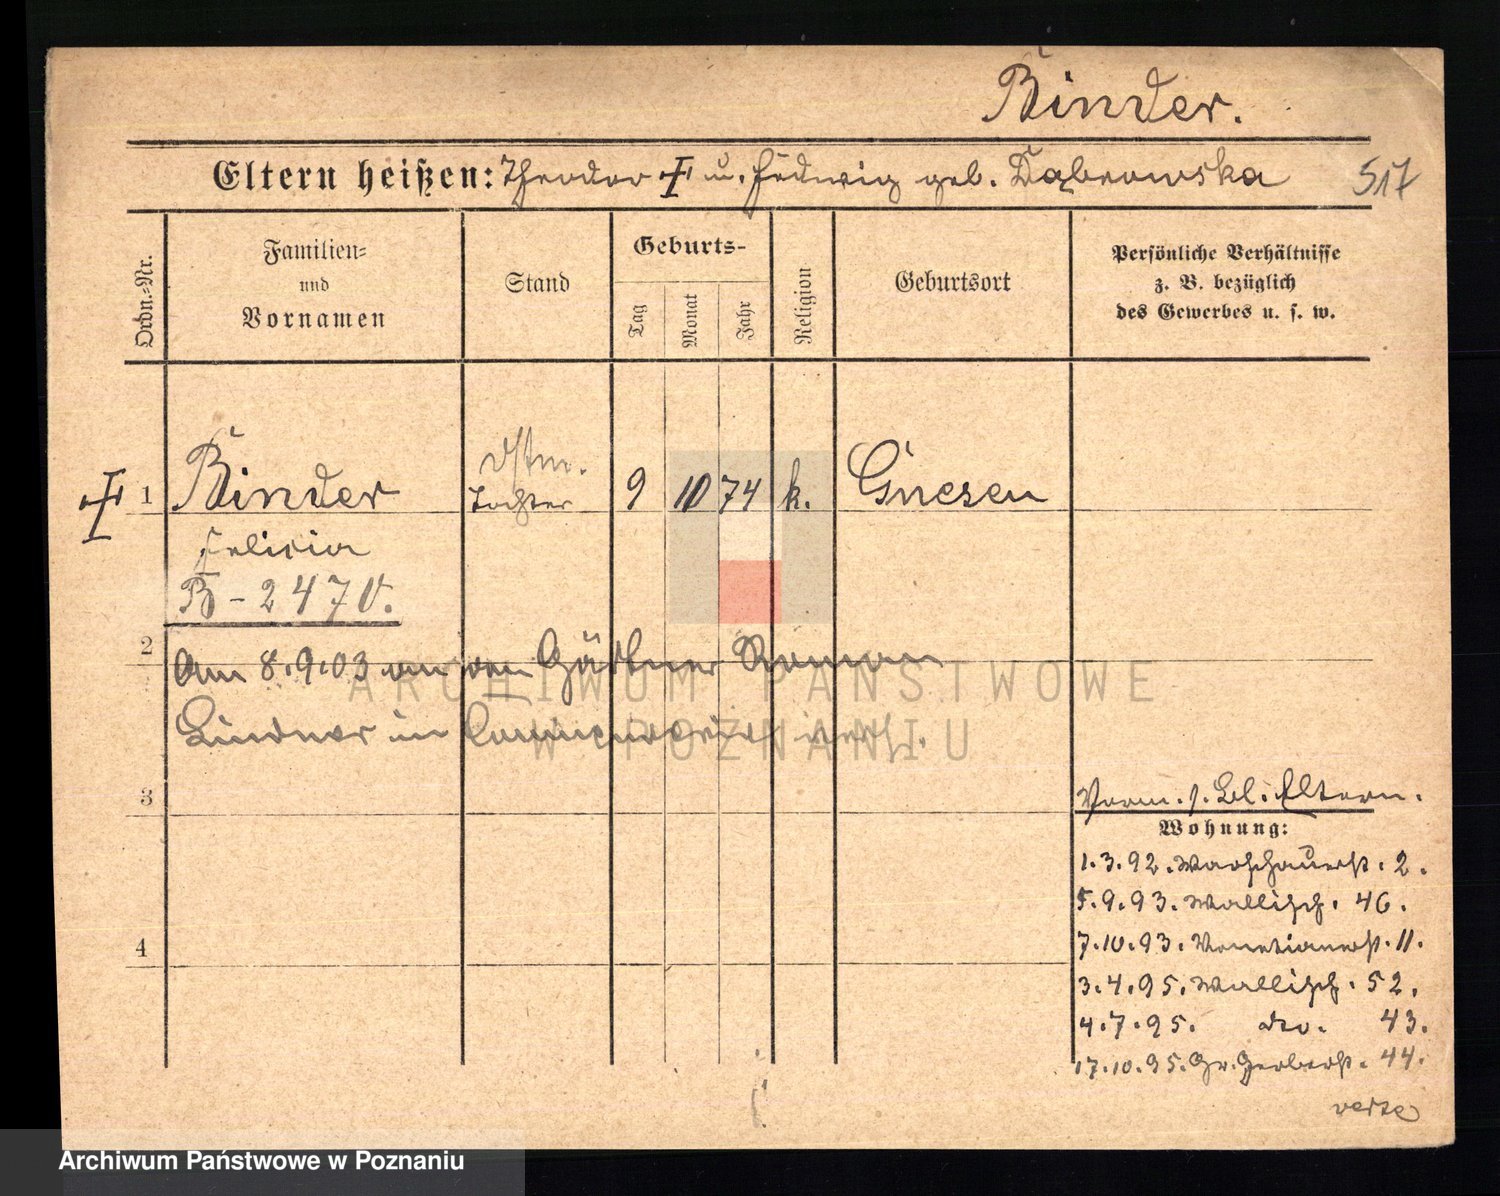 Binder.
Eltern heißen: Theodor u. Hedwig geb. Dąbrowska 517
Ordn.-Nr.
Familien-
und
Vornamen
Stand
Geburts-
Tag
Monat
Jahr
Religion
Geburtsort
Persönliche Verhältnisse
z. B. bezüglich
des Gewerbes u. s. w.
1 Binder Tochter 9 10 74 k. Gnesen
Felicia
B-2470.
2
Am 8.9.03 an den Gärtner Roman
Lindner in verh.
3
4
Vorm. s. Bl. Eltern.
Wohnung:
1.3.92. Warschauerst. 2.
5.9.93. Wallisch. 46.
7.10.93. Venetianerst. 11.
3.4.95. Wallisch. 52.
4.7.95. dto. 43.
17.10.95. Gr. Gerberst. 44.
verte
ARCHIWUM PAŃSTWOWE
W POZNANIU
Archiwum Państwowe w Poznaniu